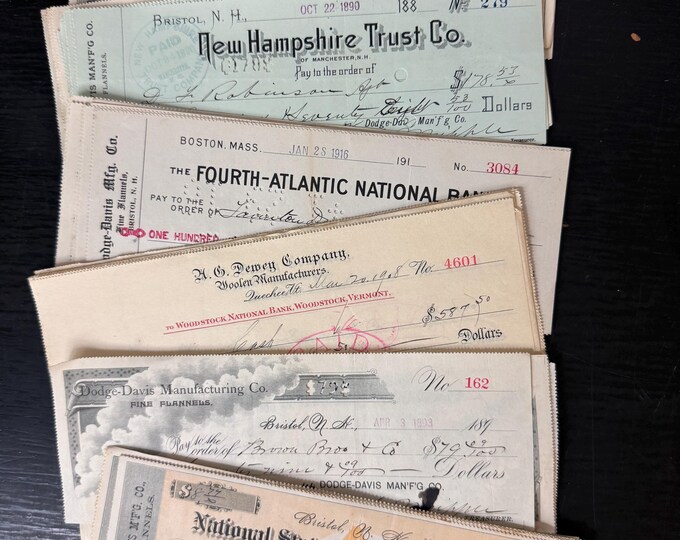 BRISTOL, N. H., OCT 22 1890 188 No 279
New Hampshire Trust Co.
OF MANCHESTER, N.H.
PAID
Pay to the order of
D. F. Robinson Agt $178.57
Seventy Eight Dollars
Dodge-Davis Man'f'g Co.
S MAN'F'G CO.
FLANNELS.
BOSTON, MASS. JAN 28 1916 191 No. 3084
THE FOURTH-ATLANTIC NATIONAL BAN
PAY TO THE
ORDER OF
ONE HUNDRED
Dodge-Davis Mfg. Co.
Fine Flannels,
BRISTOL, N. H.
A. G. Dewey Company,
Woolen Manufacturers.
Quechee, Vt. Mar 20 1908 No. 4601
TO WOODSTOCK NATIONAL BANK, WOODSTOCK, VERMONT.
$587 50
Cash
Dollars
Dodge-Davis Manufacturing Co.
FINE FLANNELS,
No 162
Bristol, N. H., APR 3 1893 189
Pay to the
order of Brown Bros & Co $79 09/100
nine & 09/100 Dollars
DODGE-DAVIS MAN'F'G CO.
TREASURER.
S M'F'G. CO.,
FLANNELS.
Bristol, N. H.
National